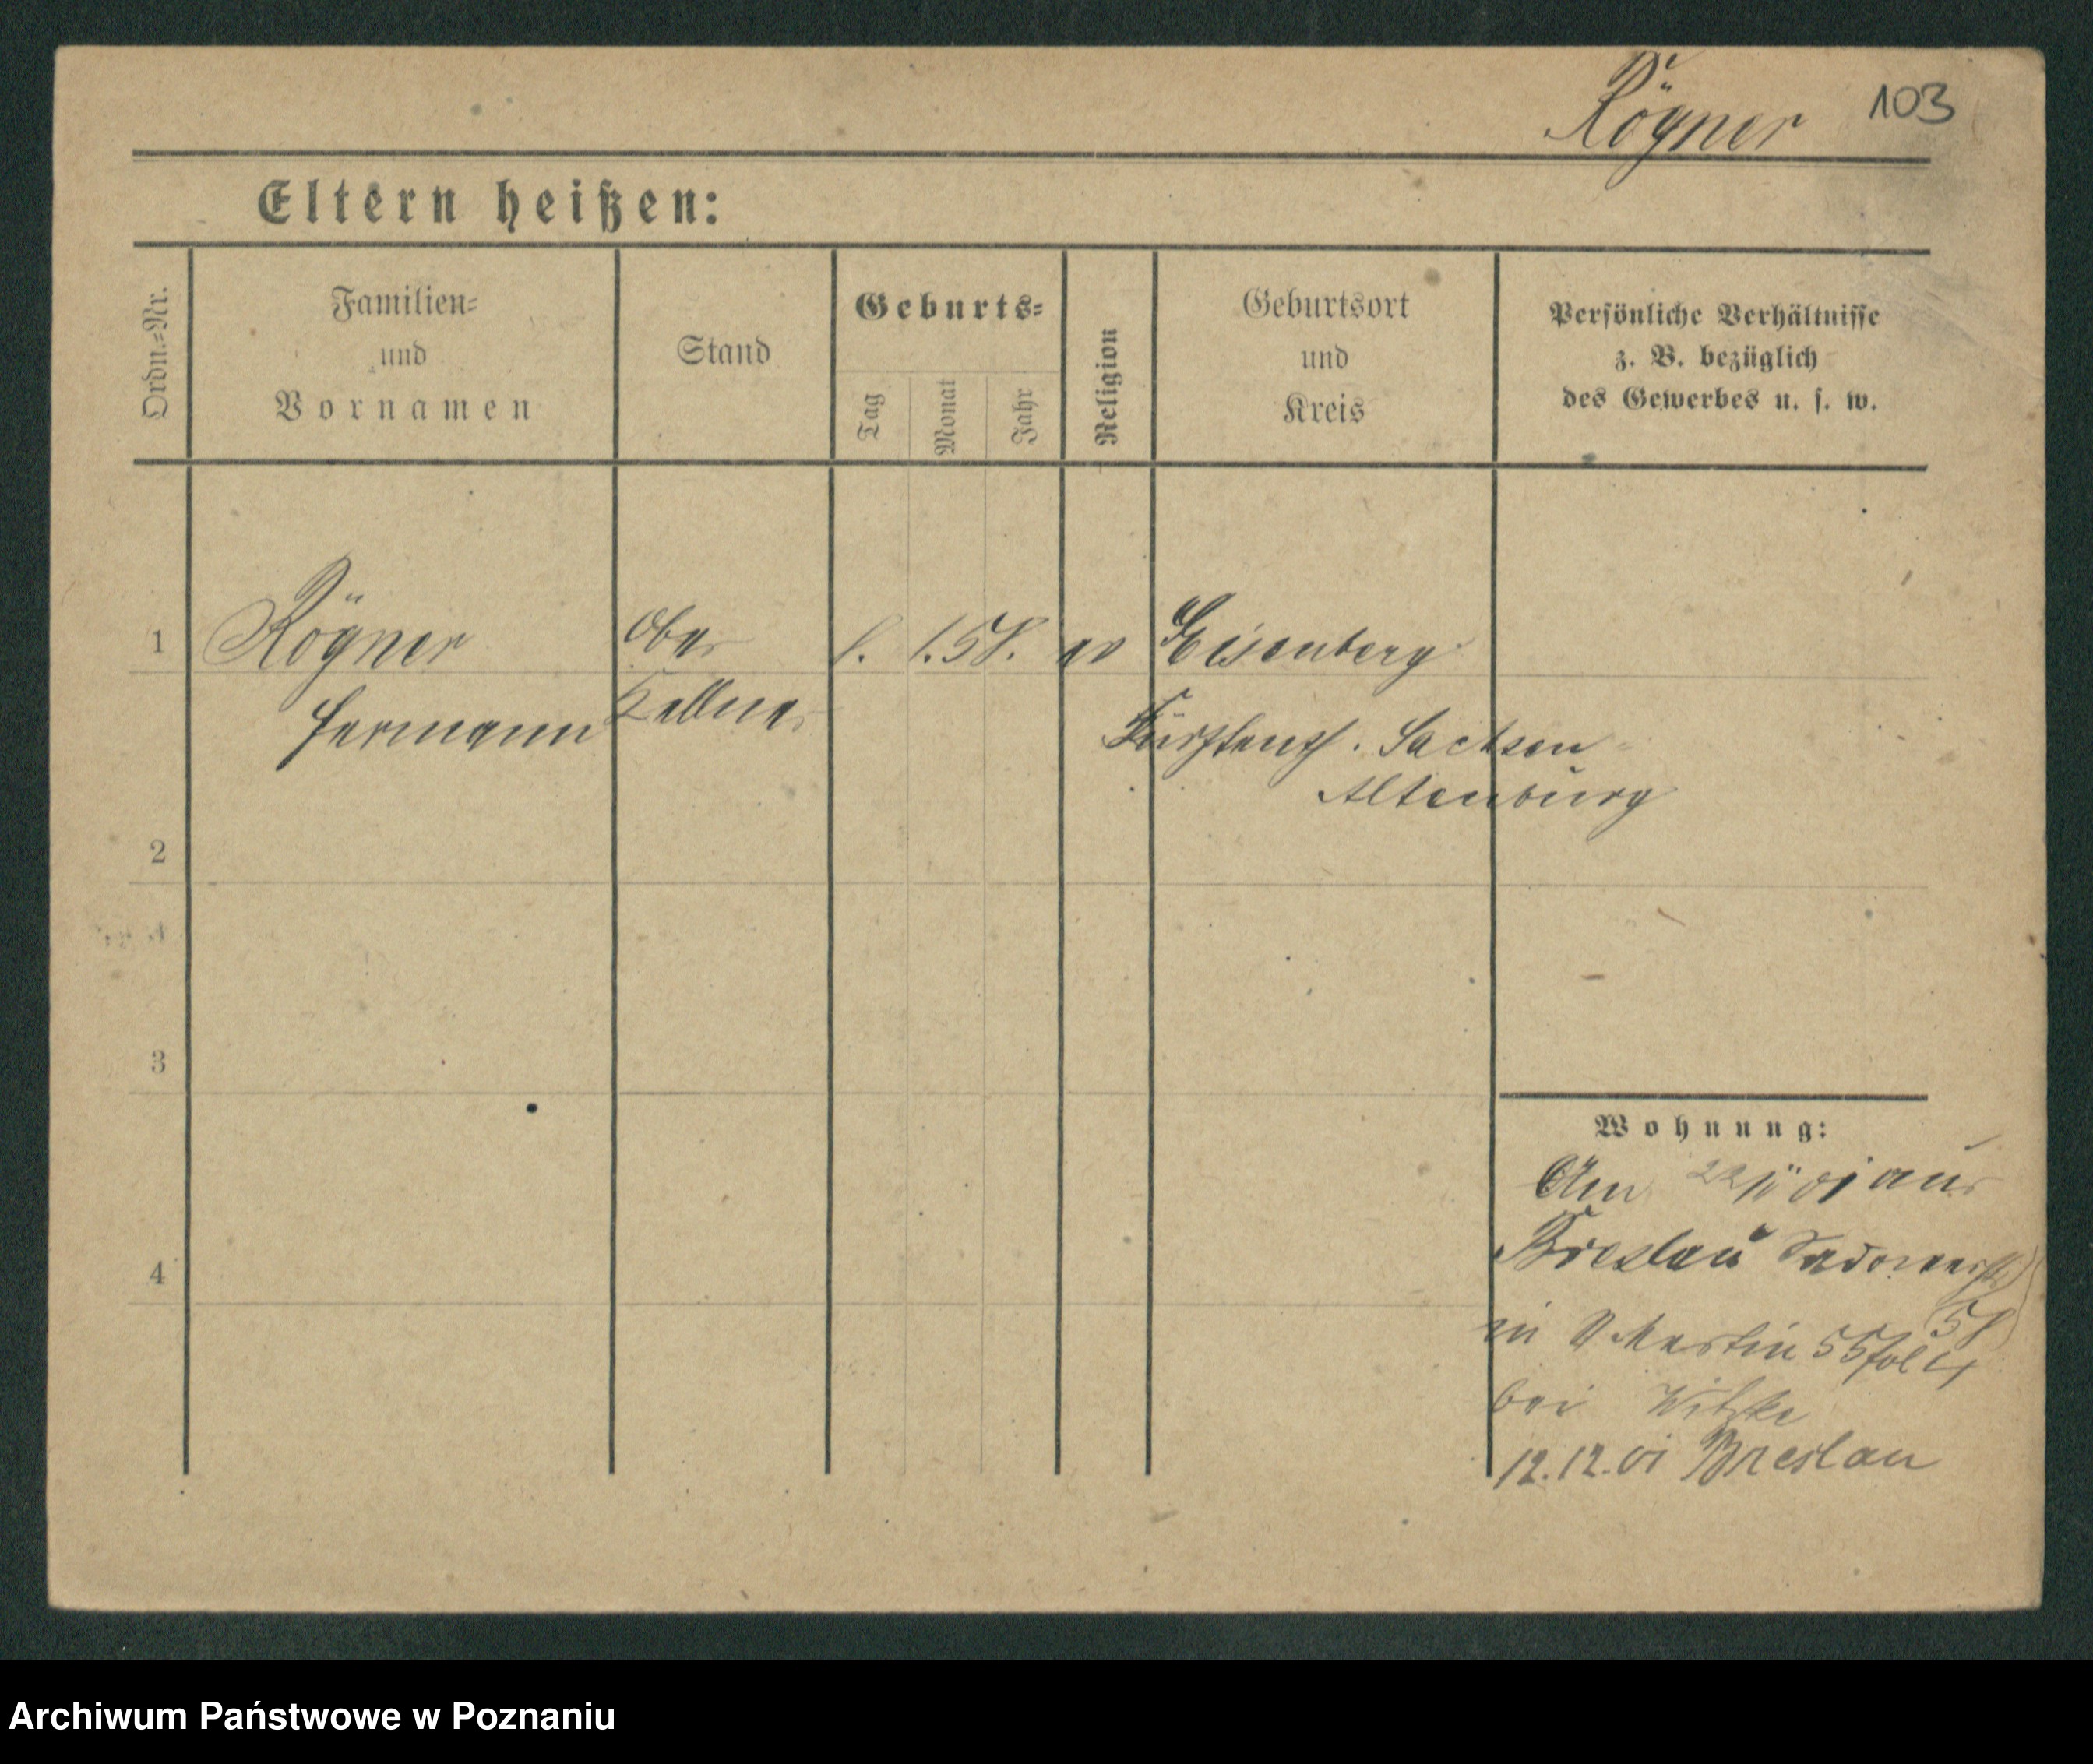 Rögner 103
Eltern heißen:
Ordn.-Nr.
Familien-
und
Vornamen
Stand
Geburts-
Tag
Monat
Jahr
Religion
Geburtsort
und
Kreis
Persönliche Verhältnisse
z. B. bezüglich
des Gewerbes u. s. w.
1 Rögner Ober 1. 58. ev Eisenberg
Hermann Kellner Fürstenth. Sachsen
Altenburg
2
3
4
Wohnung:
Am 22/11 01 aus
Breslau
in Martin 55
bei Witzke
12.12.01 Breslau
Archiwum Państwowe w Poznaniu